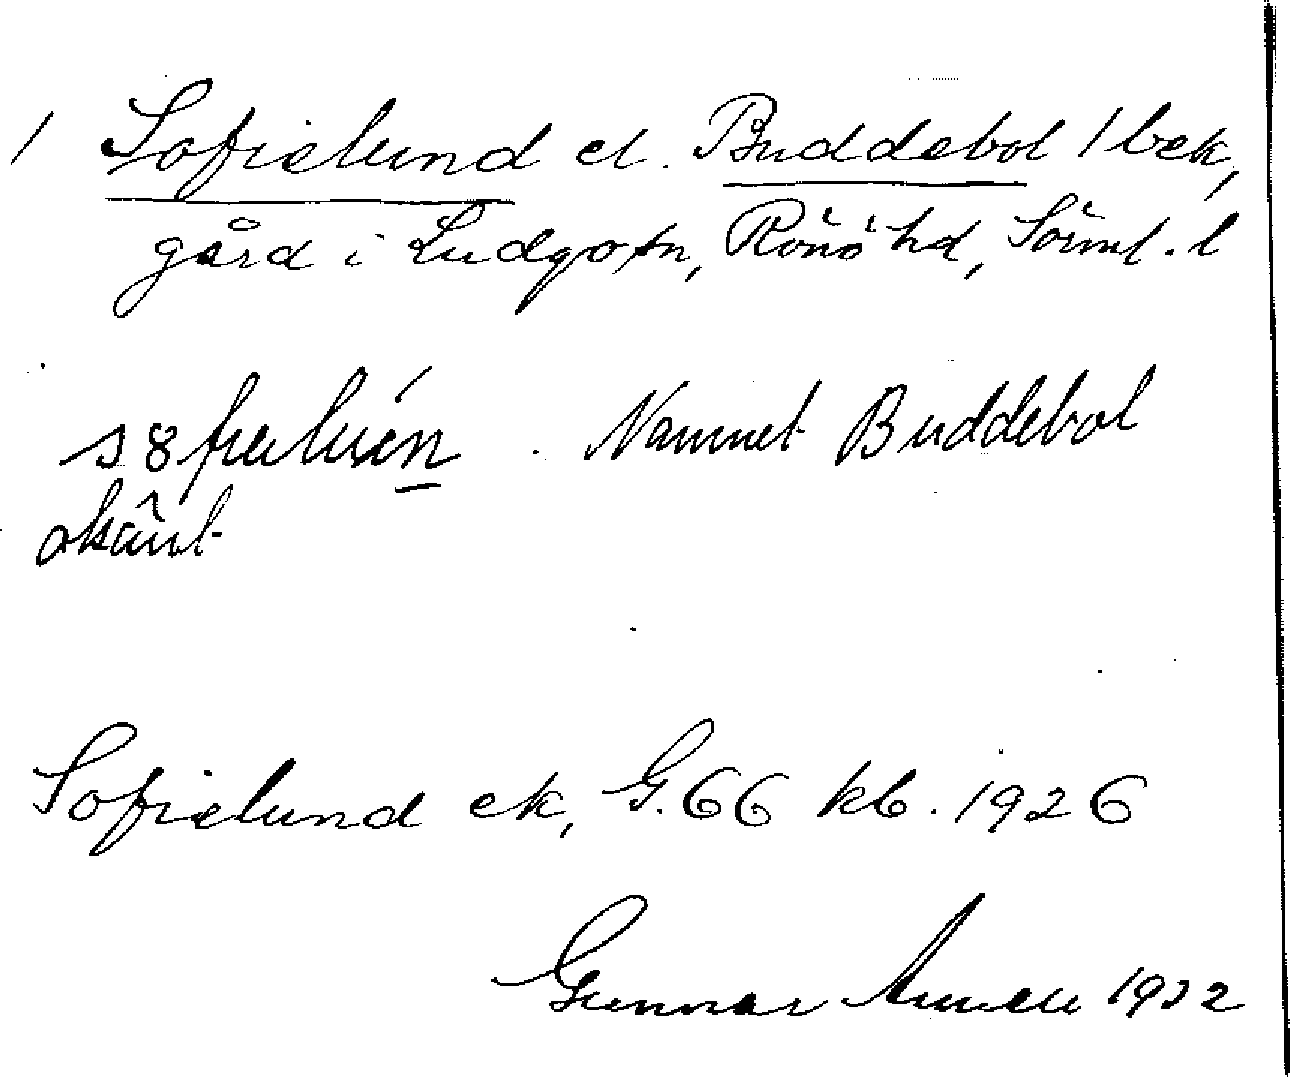 1 Sofielund el. Buddebol 1 bek,
gård i Ludgo sn, Rönö hd, Sörml. l
Namnet Buddebol
okänt
Sofielund ek, G. 66 kb. 1926
Gunnar 1932